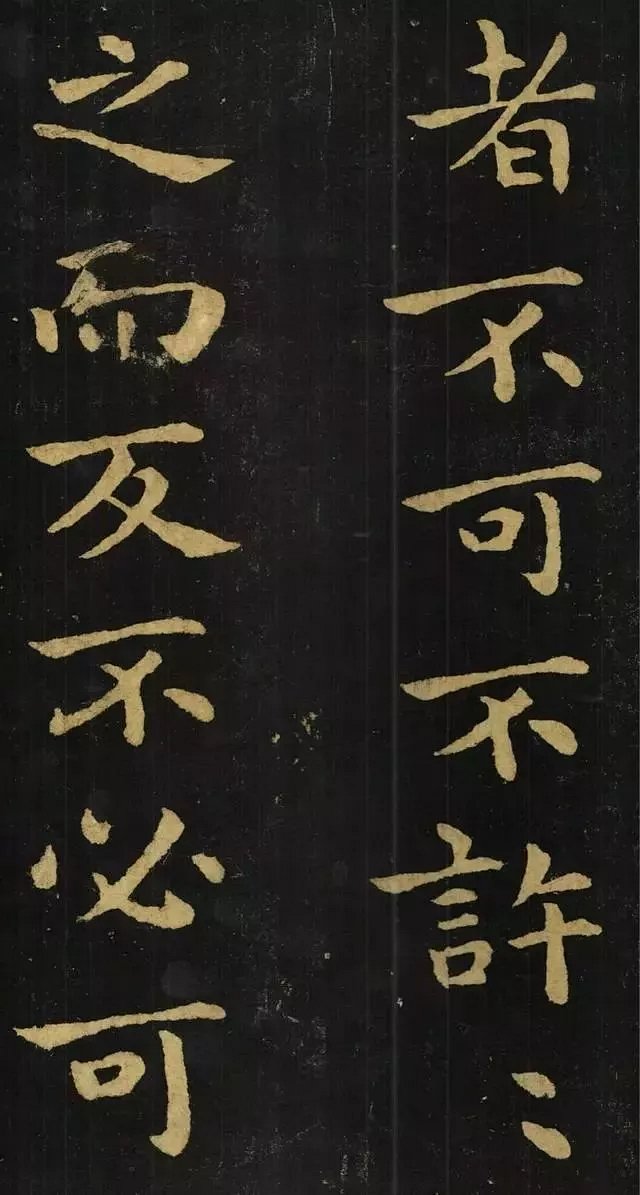 者不可不許〻
之而反不必可